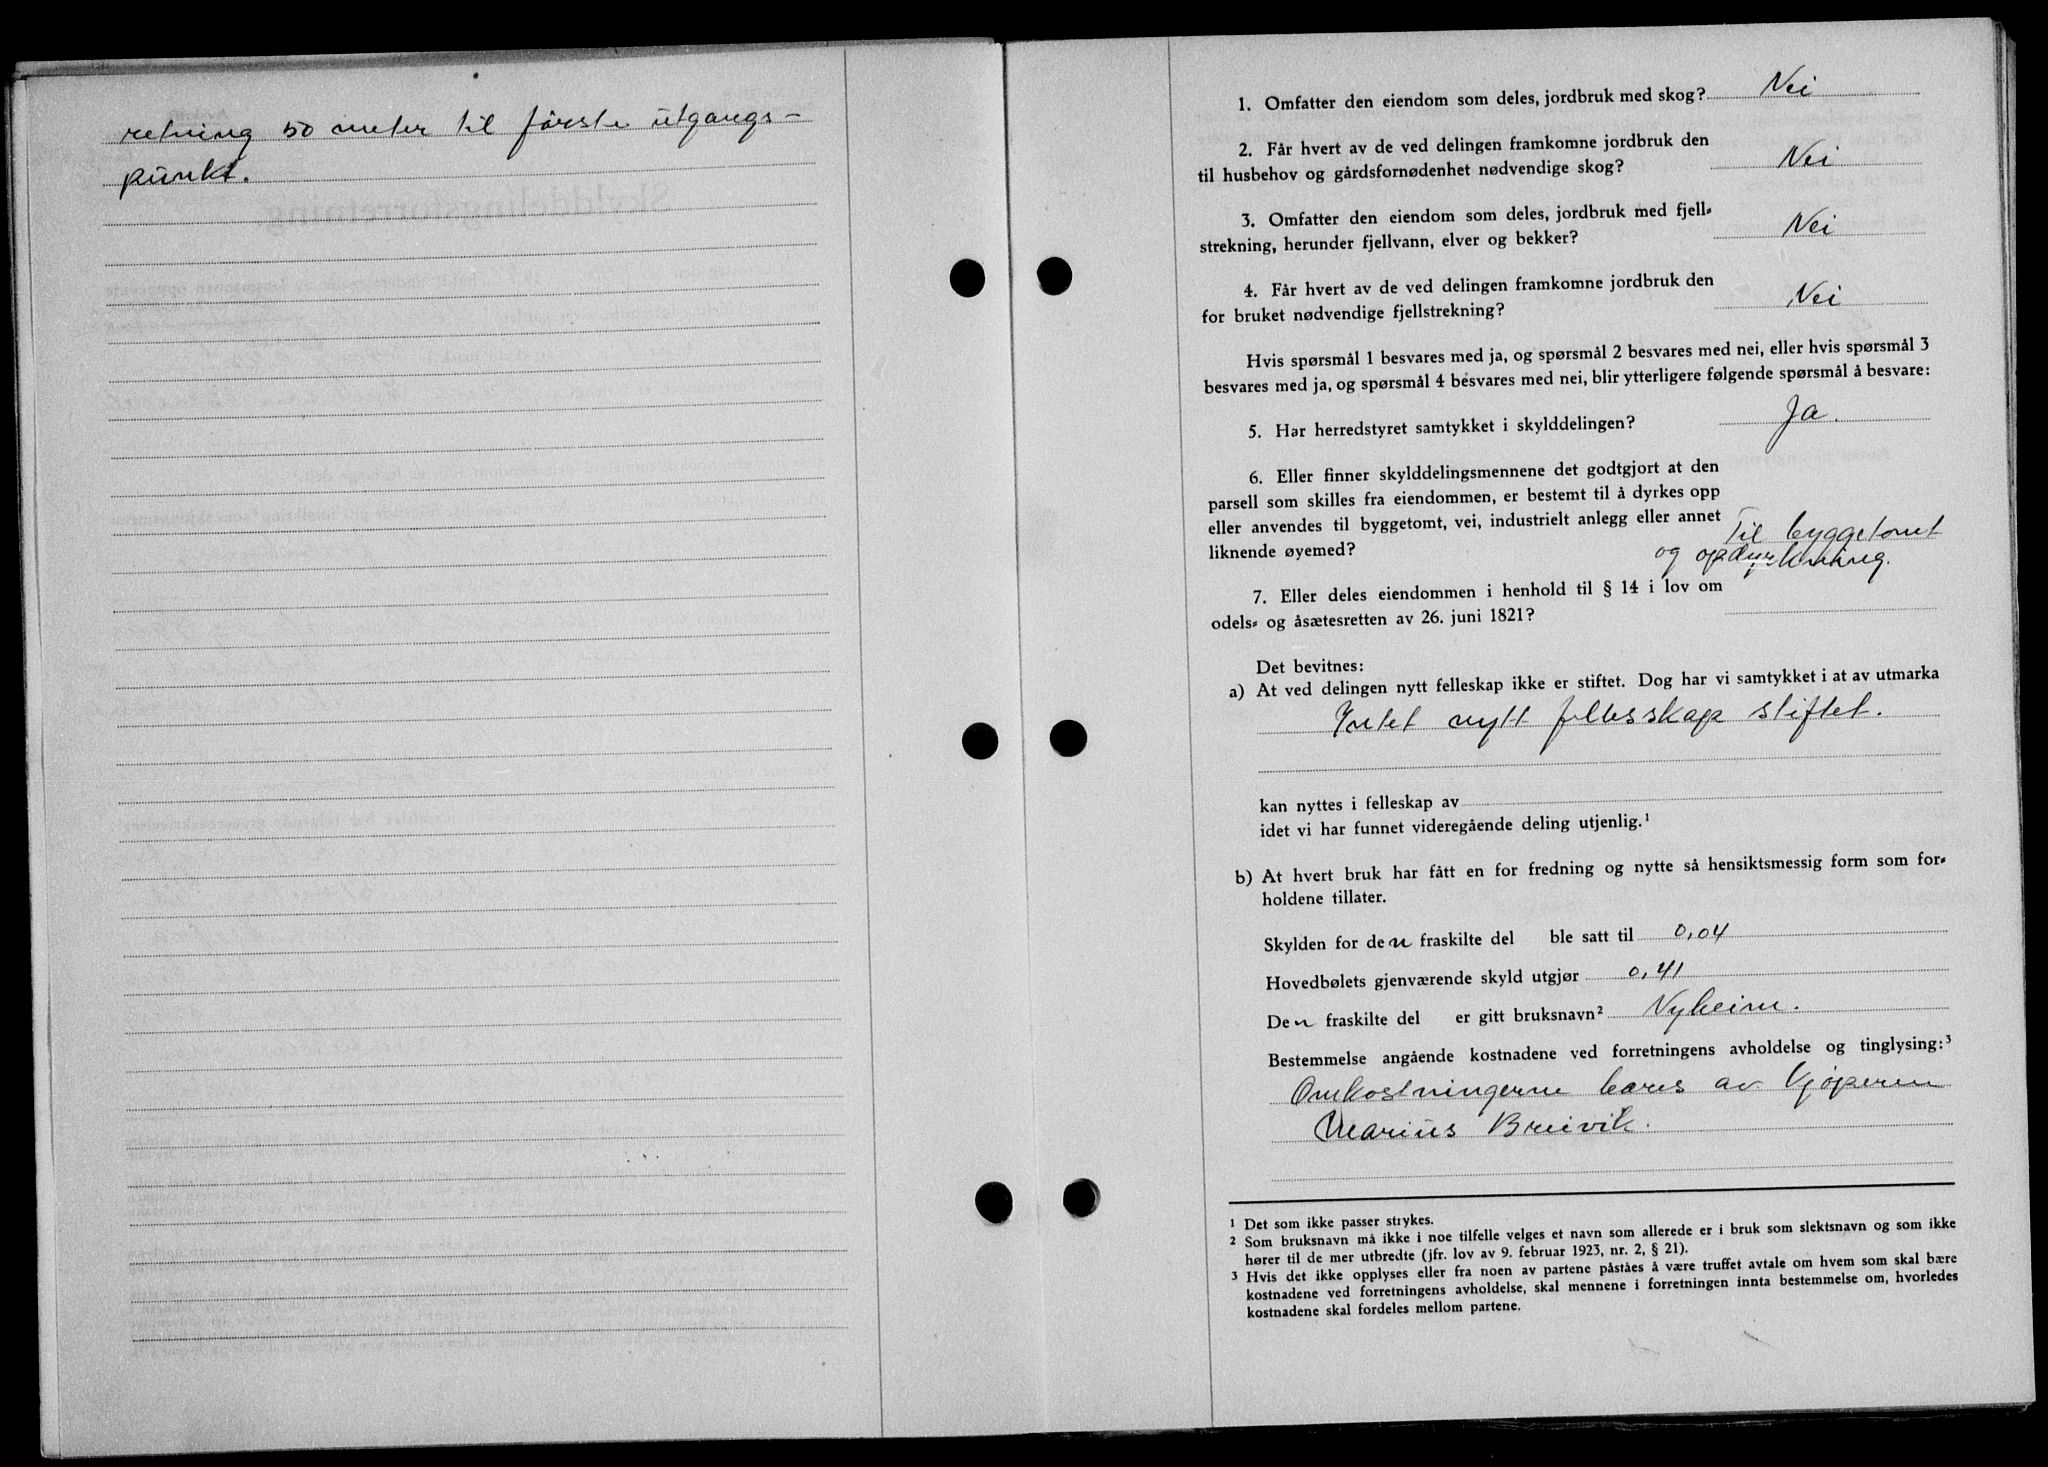 retning 50 meter til første utgangs-
punkt.
1. Omfatter den eiendom som deles, jordbruk med skog? Nei
2. Får hvert av de ved delingen framkomne jordbruk den
til husbehov og gårdsfornødenhet nødvendige skog? Nei
3. Omfatter den eiendom som deles, jordbruk med fjell-
strekning, herunder fjellvann, elver og bekker? Nei
4. Får hvert av de ved delingen framkomne jordbruk den
for bruket nødvendige fjellstrekning? Nei
Hvis spørsmål 1 besvares med ja, og spørsmål 2 besvares med nei, eller hvis spørsmål 3
besvares med ja, og spørsmål 4 besvares med nei, blir ytterligere følgende spørsmål å besvare:
5. Har herredstyret samtykket i skylddelingen? Ja.
6. Eller finner skylddelingsmennene det godtgjort at den
parsell som skilles fra eiendommen, er bestemt til å dyrkes opp
eller anvendes til byggetomt, vei, industrielt anlegg eller annet
liknende øyemed? Til byggetomt
og opdyrkning.
7. Eller deles eiendommen i henhold til § 14 i lov om
odels- og åsætesretten av 26. juni 1821?
Det bevitnes:
a) At ved delingen nytt felleskap ikke er stiftet. Dog har vi samtykket i at av utmarka
Intet nytt fellesskap stiftet.
kan nyttes i felleskap av
idet vi har funnet videregående deling utjenlig.¹
b) At hvert bruk har fått en for fredning og nytte så hensiktsmessig form som for-
holdene tillater.
Skylden for den fraskilte del ble satt til 0,04
Hovedbølets gjenværende skyld utgjør 0,41
Den fraskilte del er gitt bruksnavn² Nyheim.
Bestemmelse angående kostnadene ved forretningens avholdelse og tinglysing:³
Omkostningerne bæres av kjøperen
Marius Breivik.
¹ Det som ikke passer strykes.
² Som bruksnavn må ikke i noe tilfelle velges et navn som allerede er i bruk som slektsnavn og som ikke
hører til de mer utbredte (jfr. lov av 9. februar 1923, nr. 2, § 21).
³ Hvis det ikke opplyses eller fra noen av partene påståes å være truffet avtale om hvem som skal bære
kostnadene ved forretningens avholdelse, skal mennene i forretningen innta bestemmelse om, hvorledes
kostnadene skal fordeles mellom partene.